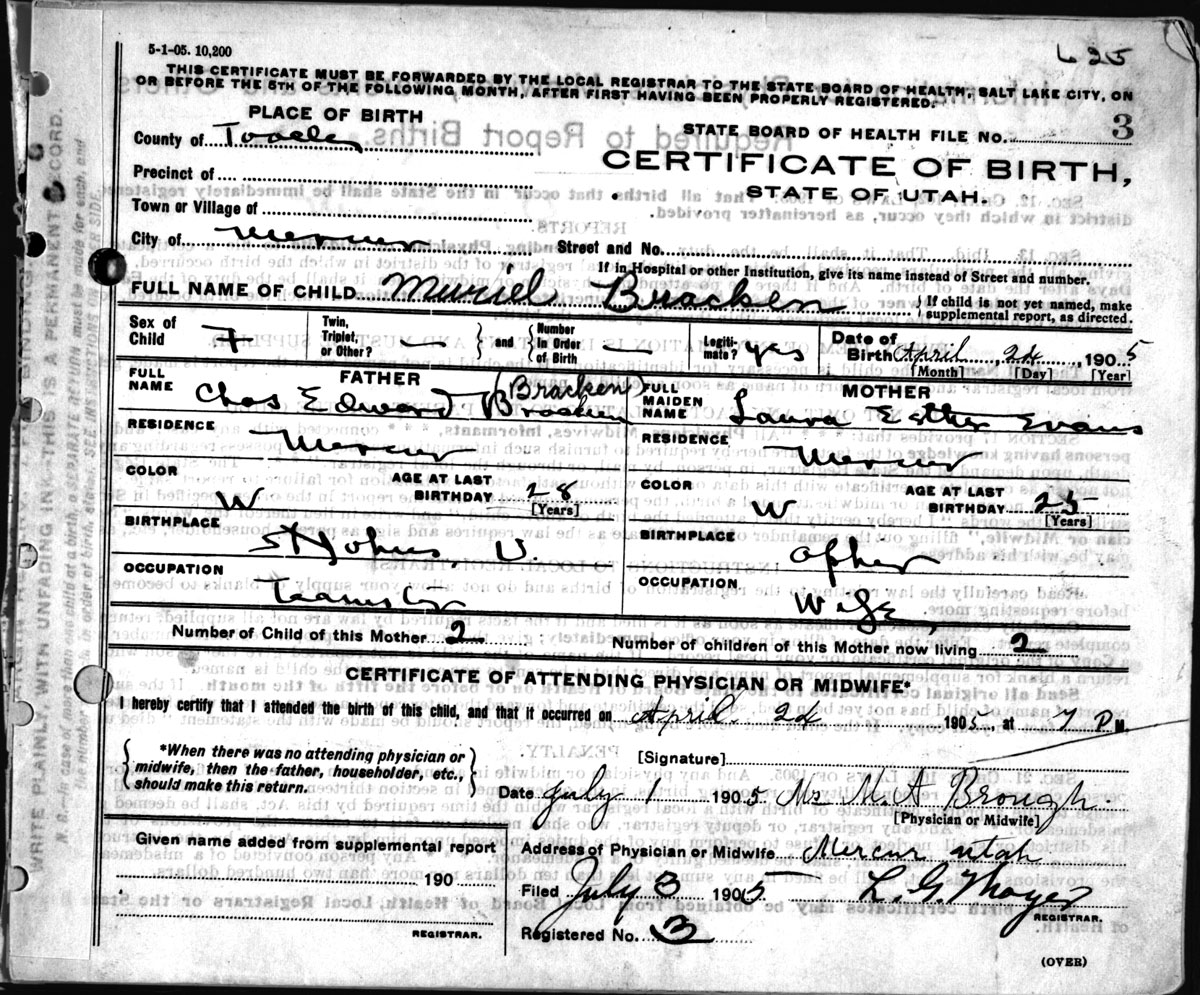 5-1-05. 10,200
625
THIS CERTIFICATE MUST BE FORWARDED BY THE LOCAL REGISTRAR TO THE STATE BOARD OF HEALTH, SALT LAKE CITY, ON
OR BEFORE THE 5TH OF THE FOLLOWING MONTH, AFTER FIRST HAVING BEEN PROPERLY REGISTERED.
PLACE OF BIRTH
County of Tooele
STATE BOARD OF HEALTH FILE No. 3
CERTIFICATE OF BIRTH,
STATE OF UTAH.
Precinct of
Town or Village of
City of Mercur
Street and No.
If in Hospital or other Institution, give its name instead of Street and number.
FULL NAME OF CHILD Muriel Bracken
{ If child is not yet named, make
supplemental report, as directed.
Sex of
Child F
Twin,
Triplet,
or Other? —
} and {
Number
in Order
of Birth —
Legiti-
mate? yes
Date of
Birth April 24, 1905
[Month] [Day] [Year]
FATHER
FULL
NAME Chas Edward Bracken (Bracken)
RESIDENCE
Mercur
COLOR
W
AGE AT LAST
BIRTHDAY 28
[Years]
BIRTHPLACE
St Johns, U.
OCCUPATION
Teamster
MOTHER
FULL
MAIDEN
NAME Laura Esther Evans
RESIDENCE
Mercur
COLOR
W
AGE AT LAST
BIRTHDAY 25
[Years]
BIRTHPLACE
Opher
OCCUPATION
Wife
Number of Child of this Mother 2
Number of children of this Mother now living 2
CERTIFICATE OF ATTENDING PHYSICIAN OR MIDWIFE*
I hereby certify that I attended the birth of this child, and that it occurred on April 24 1905, at 7 P M.
{ *When there was no attending physician or
midwife, then the father, householder, etc.,
should make this return. }
[Signature]
Date July 1 1905 Mrs M. A Brough.
[Physician or Midwife]
Given name added from supplemental report
190
REGISTRAR.
Address of Physician or Midwife Mercur utah
Filed July 3 1905 L. G. Thayer
REGISTRAR.
Registered No. 3
(OVER)
WRITE PLAINLY WITH UNFADING INK—THIS IS A PERMANENT RECORD.
N. B.—In case of more than one child at a birth, a SEPARATE RETURN must be made for each, and
the number of each, in order of birth, stated. SEE INSTRUCTIONS ON OTHER SIDE.